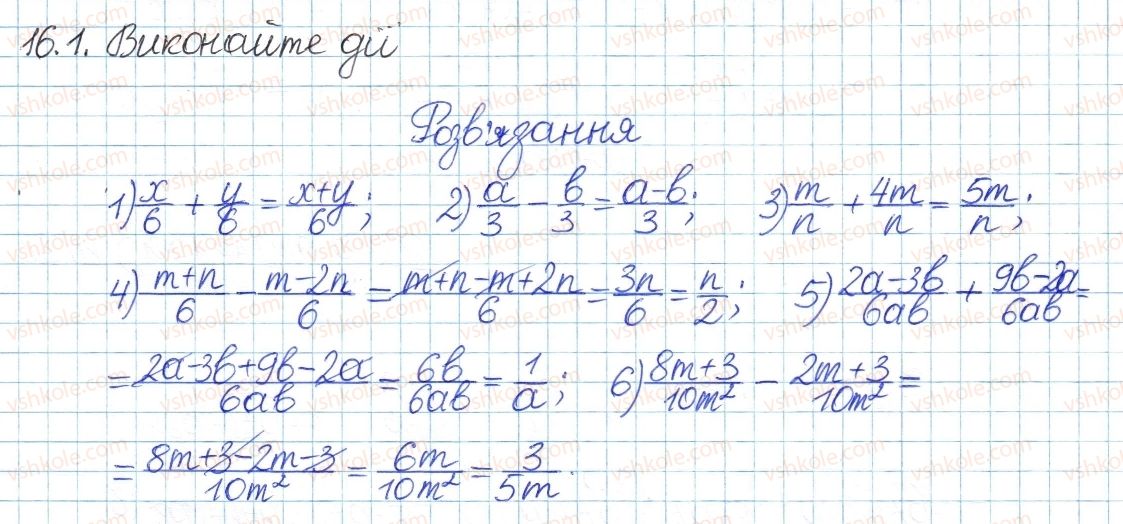 16.1. Виконайте дії
Розв'язання
1) x/6 + y/6 = x+y/6; 2) a/3 − b/3 = a−b/3; 3) m/n + 4m/n = 5m/n;
4) m+n/6 − m−2n/6 = m+n−m+2n/6 = 3n/6 = n/2; 5) 2a−3b/6ab + 9b−2a/6ab =
= 2a−3b+9b−2a/6ab = 6b/6ab = 1/a; 6) 8m+3/10m² − 2m+3/10m² =
= 8m+3−2m−3/10m² = 6m/10m² = 3/5m.
vshkole.com